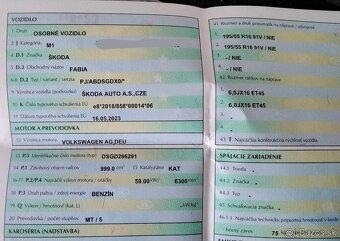 VOZIDLO
1 Druh OSOBNÉ VOZIDLO
2 J Kategória M1
4 D.1 Značka ŠKODA
5 D.3 Obchodný názov FABIA
6-8 D.2 Typ / variant / verzia PJ/ABDSGDX0/*
9 Výrobca vozidla (podvozku) ŠKODA AUTO A.S.,CZE
10 K Číslo typového schválenia EÚ e8*2018/858*00014*06
11 Dátum typového schválenia EÚ 16.05.2023
MOTOR A PREVODOVKA
12 Výrobca motora VOLKSWAGEN AG,DEU
13 P.5 Identifikačné číslo motora (typ) DSGD286291
14 P.1 Zdvihový objem valcov 999.0 cm³ 15 Katalyzátor KAT
16-17 P.2-P.4 Najväčší výkon motora / otáčky 59.00 kW/ 6300 min⁻¹
18 P.3 Druh paliva / zdroj energie BENZÍN
19 Q Výkon / hmotn. kW.kg⁻¹
20 Prevodovka / počet stupňov MT / 5
KAROSÉRIA (NADSTAVBA)
41 Rozmer a druh pneumatík na náprave
195/55 R16 91V / NIE
195/55 R16 91V / NIE
- / NIE
- / NIE
42 Rozmer ráfikov na náprave
6,0JX16 ET45
6,0JX16 ET45
43 T Najväčšia konštrukčná rýchlosť vozidla
SPÁJACIE ZARIADENIE
44.1 Trieda
44.2 Značka
44.3 Typ
44.5 S Najväčšie
75